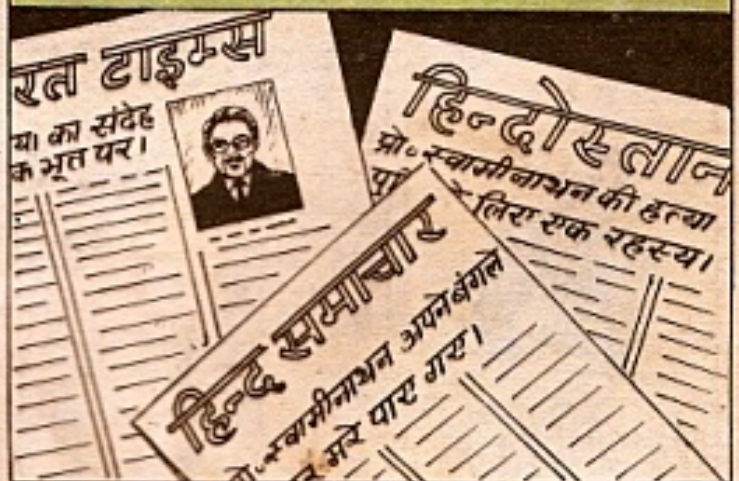 रत टाइम्स
या का संदेह
क भूत पर।
हिन्दोस्तान
प्रो॰ स्वामीनाथन की हत्या
लिए एक रहस्य।
हिन्द समाचार
स्वामीनाथन अपने बंगले
मरे पाए गए।